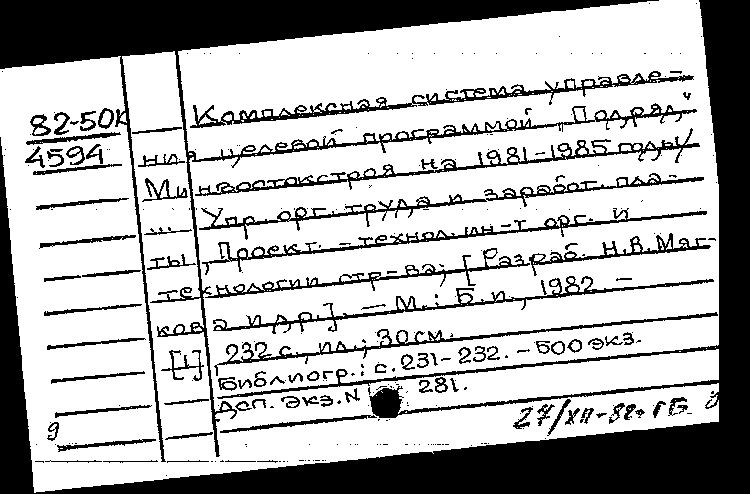 82-50К
4594
Комплексная система управле-
ния целевой программой „Подряд"
Минвостокстроя на 1981-1985 годы/
... Упр. орг. труда и заработ. пла-
ты, Проект.-технол. ин-т орг. и
технологии стр-ва; [Разраб. Н.В. Мяг-
кова и др.]. — М.: Б.и., 1982. —
[1] 232 с., ил.; 30 см.
Библиогр.: с. 231-232. - 500 экз.
Дсп. Экз. N 281.
27/XII-82. ГБ